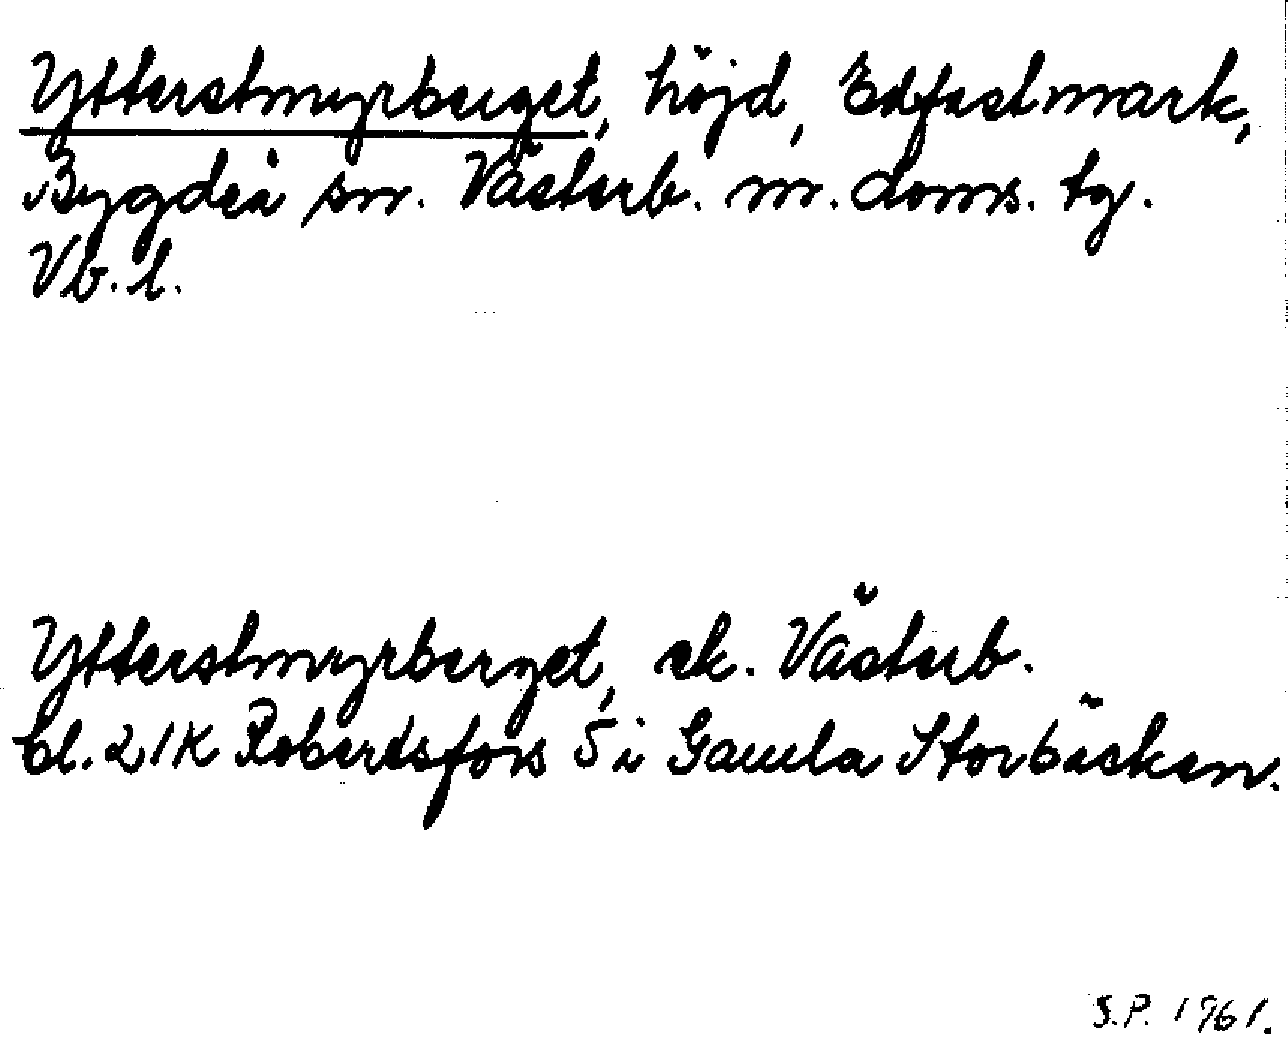 Ytterstmyrberget, höjd, Edfastmark,
Bygdeå sn. Västerb. m. doms. tg.
Vb. l.
Ytterstmyrberget, ek. Västerb.
bl. 21K Robertsfors 5 i Gamla Storbäcken.
S.P. 1961.